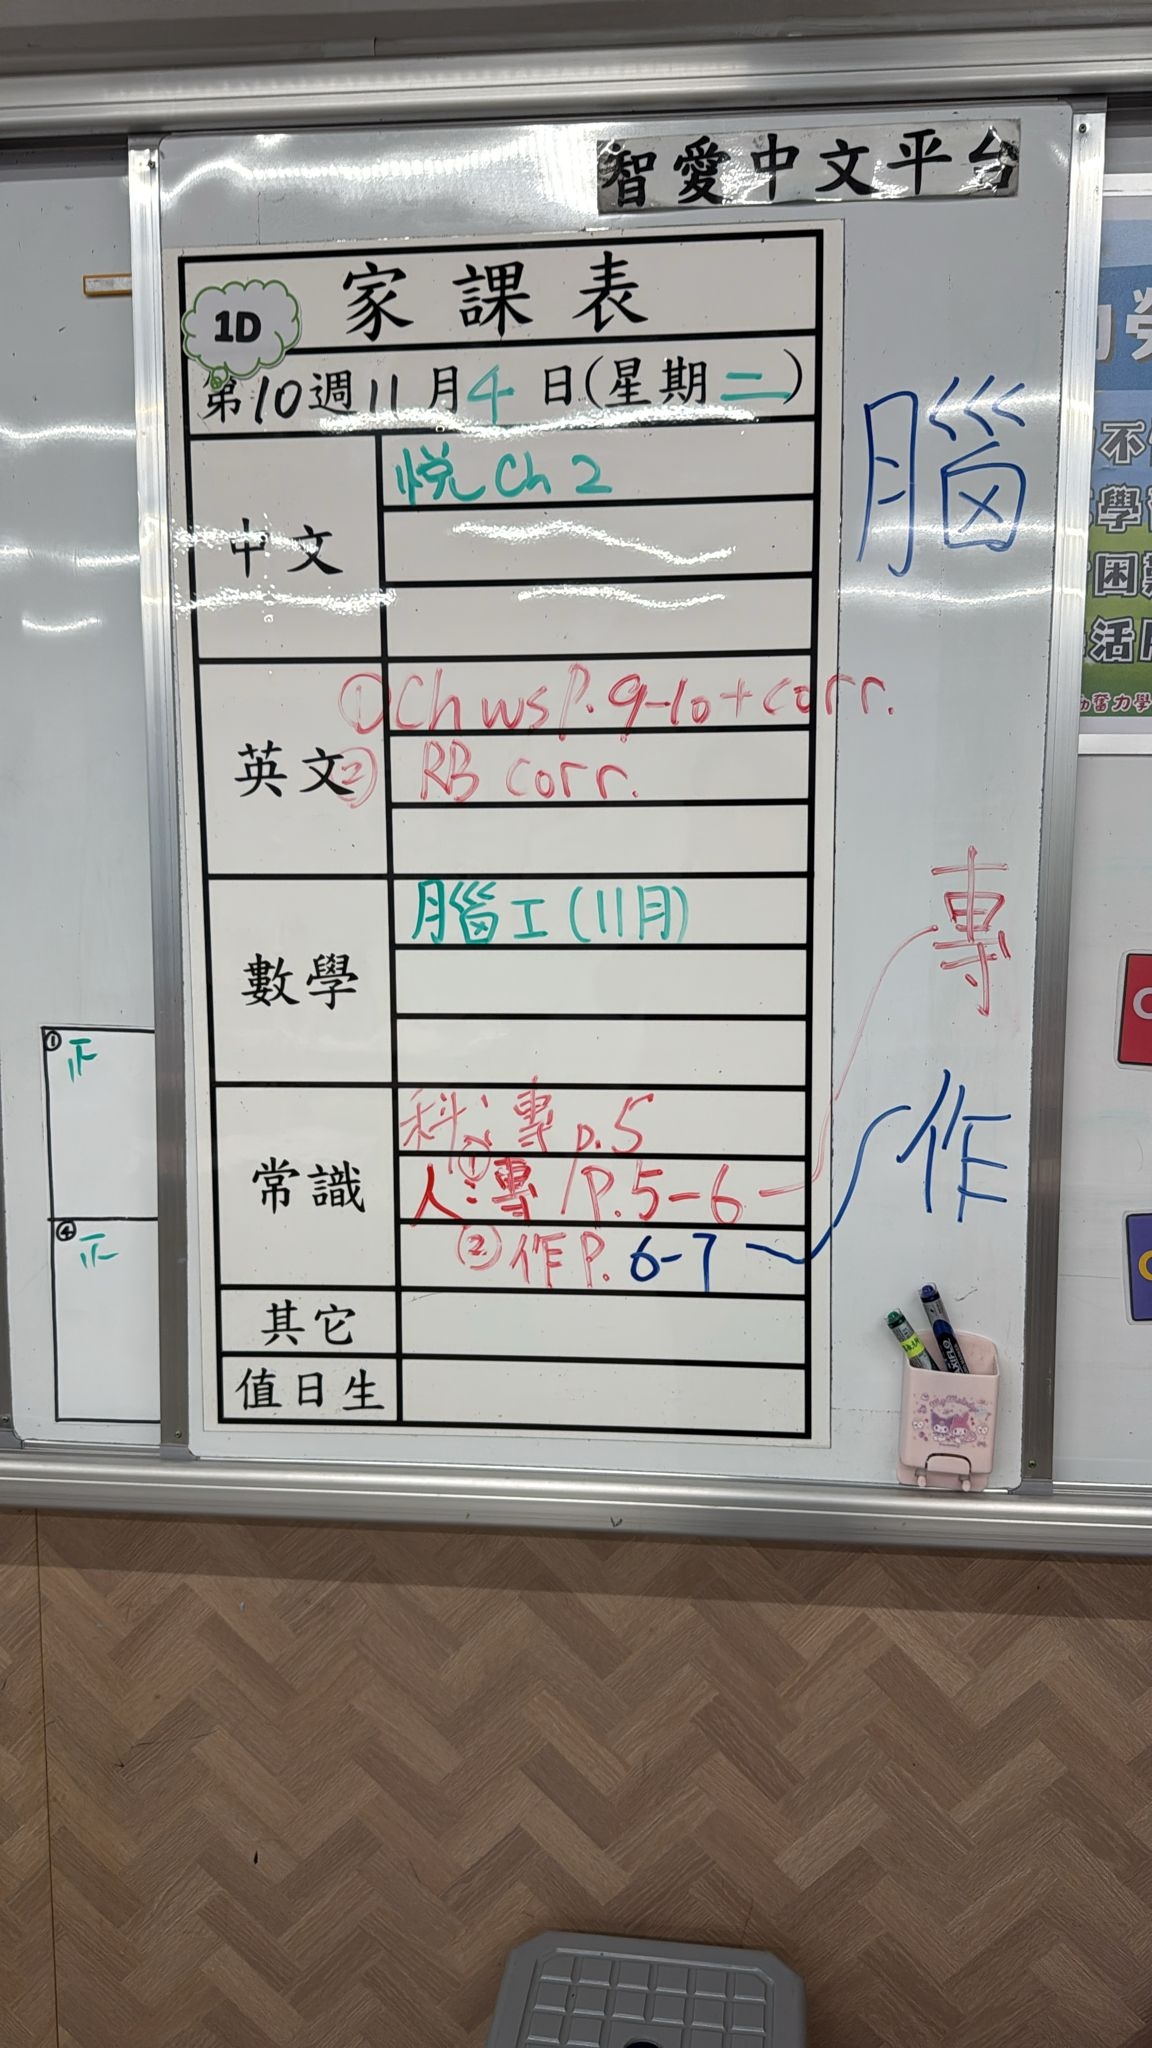 智愛中文平台
家課表
1D
第10週11月4日(星期二)
中文
悅 Ch 2
英文
① Ch ws P. 9-10 + corr.
② RB corr.
數學
腦工(11月)
常識
科: 專 p.5
人: ① 專 P.5-6
② 作 P. 6-7
其它
值日生
腦
專
作
① 正
④ 正
不
學
困
活
奮力學